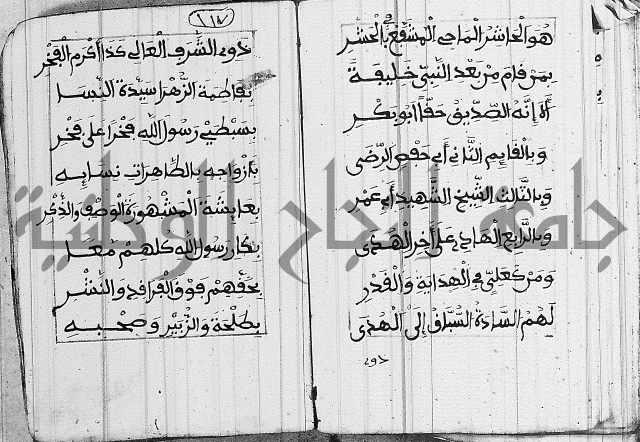 هو الحاشر الماحي المشفع بالحشر
بمن قام من بعد النبي خليفة
ألا إنه الصديق حقا أبو بكر
وبالقايم الثاني أبي حفص الرضى
وبالثالث الشيخ الشهيد أبي عمر
وبالرابع الهادي على أخر الهدى
ومن كعلي في الهداية والقدر
لهم السادة السباق إلى الهدى
ذوي
١١٧
ذوي الشرف العالي كذا أكرم الفخر
بفاطمة الزهرا سيدة النسا
بسبطي رسول الله فخرا على فخر
بأزواجه بالطاهرات نسايه
بعايشة المشهورة الوصف والذكر
بكل رسول الله كلهم معا
بحقهم فوق الفراقد والنشر
بطلحة والزبير وصحبه
جامعة النجاح الوطنية